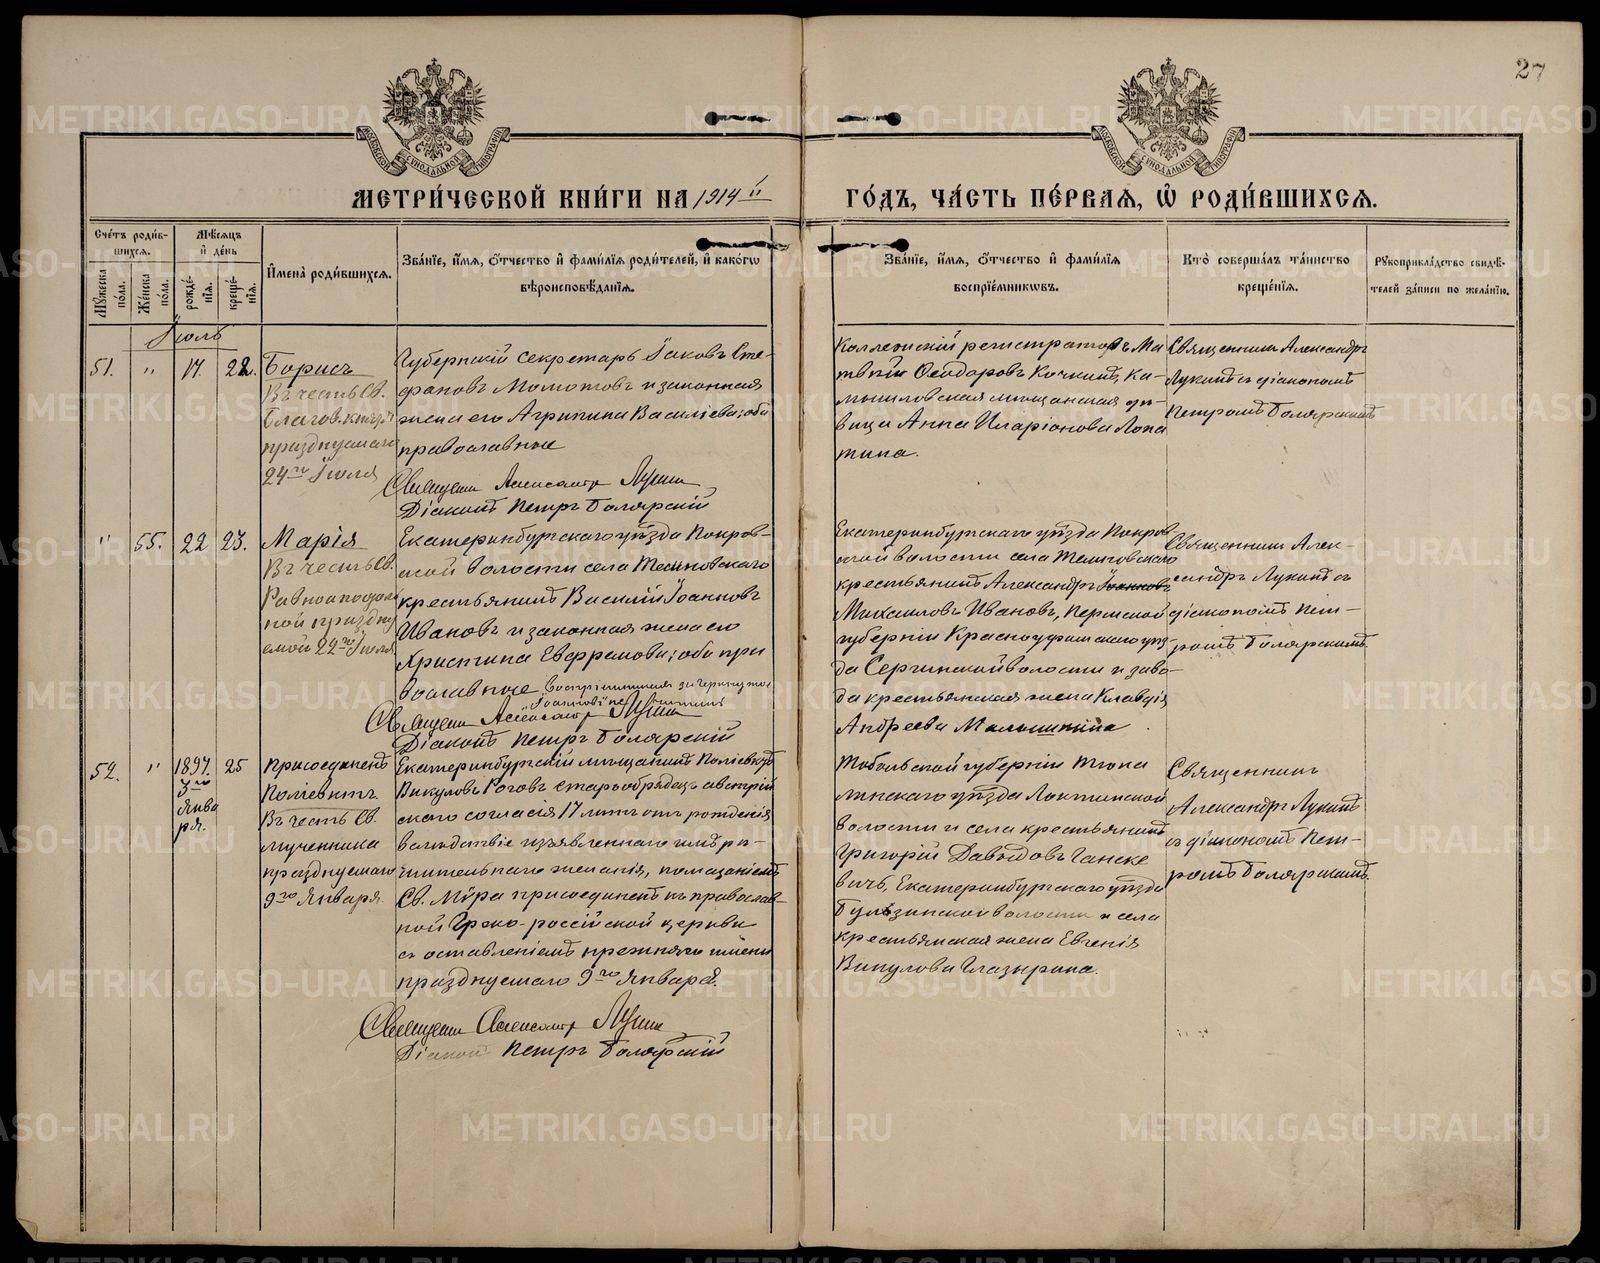 27
МОСКОВСКОЙ СУНОДАЛЬНОЙ ТИПОГРАФІИ
МОСКОВСКОЙ СУНОДАЛЬНОЙ ТИПОГРАФІИ
МЕТРИ́ЧЕСКОЙ КНИ́ГИ НА 1914 й
ГО́ДЪ, ЧА́СТЬ ПЕ́РВАѦ, Ѡ҆ РОДИ́ВШИХСѦ.
Сче́тъ роди́в-
шихсѧ.
Мꙋ́жеска по́ла.
Же́нска по́ла.
Мѣ́сѧцъ
и҆ де́нь
рожде́-
нїѧ.
креще́-
нїѧ.
И҆мена̀ роди́вшихсѧ.
Зва́нїе, и҆́мѧ, ѻ҆́тчество и҆ фами́лїѧ роди́телей, и҆ како́гѡ
вѣроисповѣ́данїѧ.
Зва́нїе, и҆́мѧ, ѻ҆́тчество и҆ фами́лїѧ
воспрїе́мникѡвъ.
Кто̀ соверша́лъ та́инство
креще́нїѧ.
Рꙋкоприкла́дство свидѣ́-
телей за́писи по жела́нїю.
Іюль
51. " 17. 22.
Борисъ
Въ честь Св.
Благов. князя
празднуемаго
24го Іюля
Губернскій секретарь Іаковъ Сте-
фановъ Молотовъ и законная
жена его Агрипина Василіева; оба
православные
Священникъ Александръ Лукинъ
Діаконъ Петръ Боляр­скій
Коллежскій регистраторъ Ма
твѣй Ѳеодоровъ Кочкинъ, Ка-
мышловская мѣщанская дѣ-
вица Анна Иларіонова Лопа
тина.
Священникъ Александръ
Лукинъ съ діакономъ
Петромъ Болярскимъ
" 55. 22 23.
Марія
Въ честь Св.
Равноапостоль
ной праздну
емой 22го Іюля
Екатеринбургскаго уѣзда Покров-
ской волости села
крестьянинъ Василій Іоанновъ
Ивановъ и законная жена его
Христина Евфремова; оба пра
вославные.
Священникъ Александръ Лукинъ
Діаконъ Петръ Болярскій
Екатеринбургскаго уѣзда Покров
ской волости села
крестьянинъ Александръ Іоанновъ
Михаиловъ Ивановъ, Пермской
губерніи Красноуфимскаго уѣз-
да Сергинской волости и заво-
да крестьянская жена Клавдія
Андреева Малышкина
Священникъ Алек-
сандръ Лукинъ съ
діакономъ Пет-
ромъ Болярскимъ.
52. " 1897. 25
9го
Янва
ря.
Присоединенъ
Поліевктъ
Въ честь Св.
мученника
празднуемаго
9го Января.
Екатеринбургскій мѣщанинъ Поліевктъ
Викуловъ Роговъ старообрядецъ австрій
скаго согласія 17 лѣтъ отъ рожденія
вслѣдствіе изъявленнаго имъ рѣ-
шительнаго желанія, помазаніемъ
Св. Мѵра присоединенъ къ православ-
ной Греко-россійской церкви
съ оставленіемъ прежняго имени
празднуемаго 9го Января.
Священникъ Александръ Лукинъ
Діаконъ Петръ Болярскій
Тобольской губерніи Тюка
линскаго уѣзда Локтинской
волости и села крестьянинъ
Григорій Давыдовъ Ганске
вичъ, Екатеринбургскаго уѣзда
Булзинской волости и села
крестьянская жена Евгенія
Викулова Глазырина.
Священникъ
Александръ Лукинъ
съ діакономъ Пет-
ромъ Болярскимъ.
METRIKI.GASO-URAL.RU